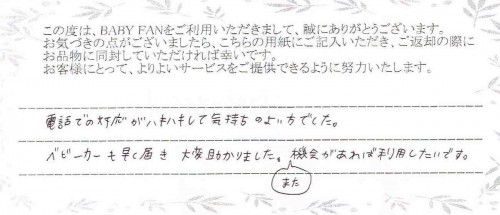 この度は、BABY FANをご利用いただきまして、誠にありがとうございます。
お気づきの点がございましたら、こちらの用紙にご記入いただき、ご返却の際に
お品物に同封していただければ幸いです。
お客様にとって、よりよいサービスをご提供できるように努力いたします。
電話での対応がハキハキして気持ちのよい方でした。
ベビーカーも早く届き 大変助かりました。機会があれば利用したいです。
また